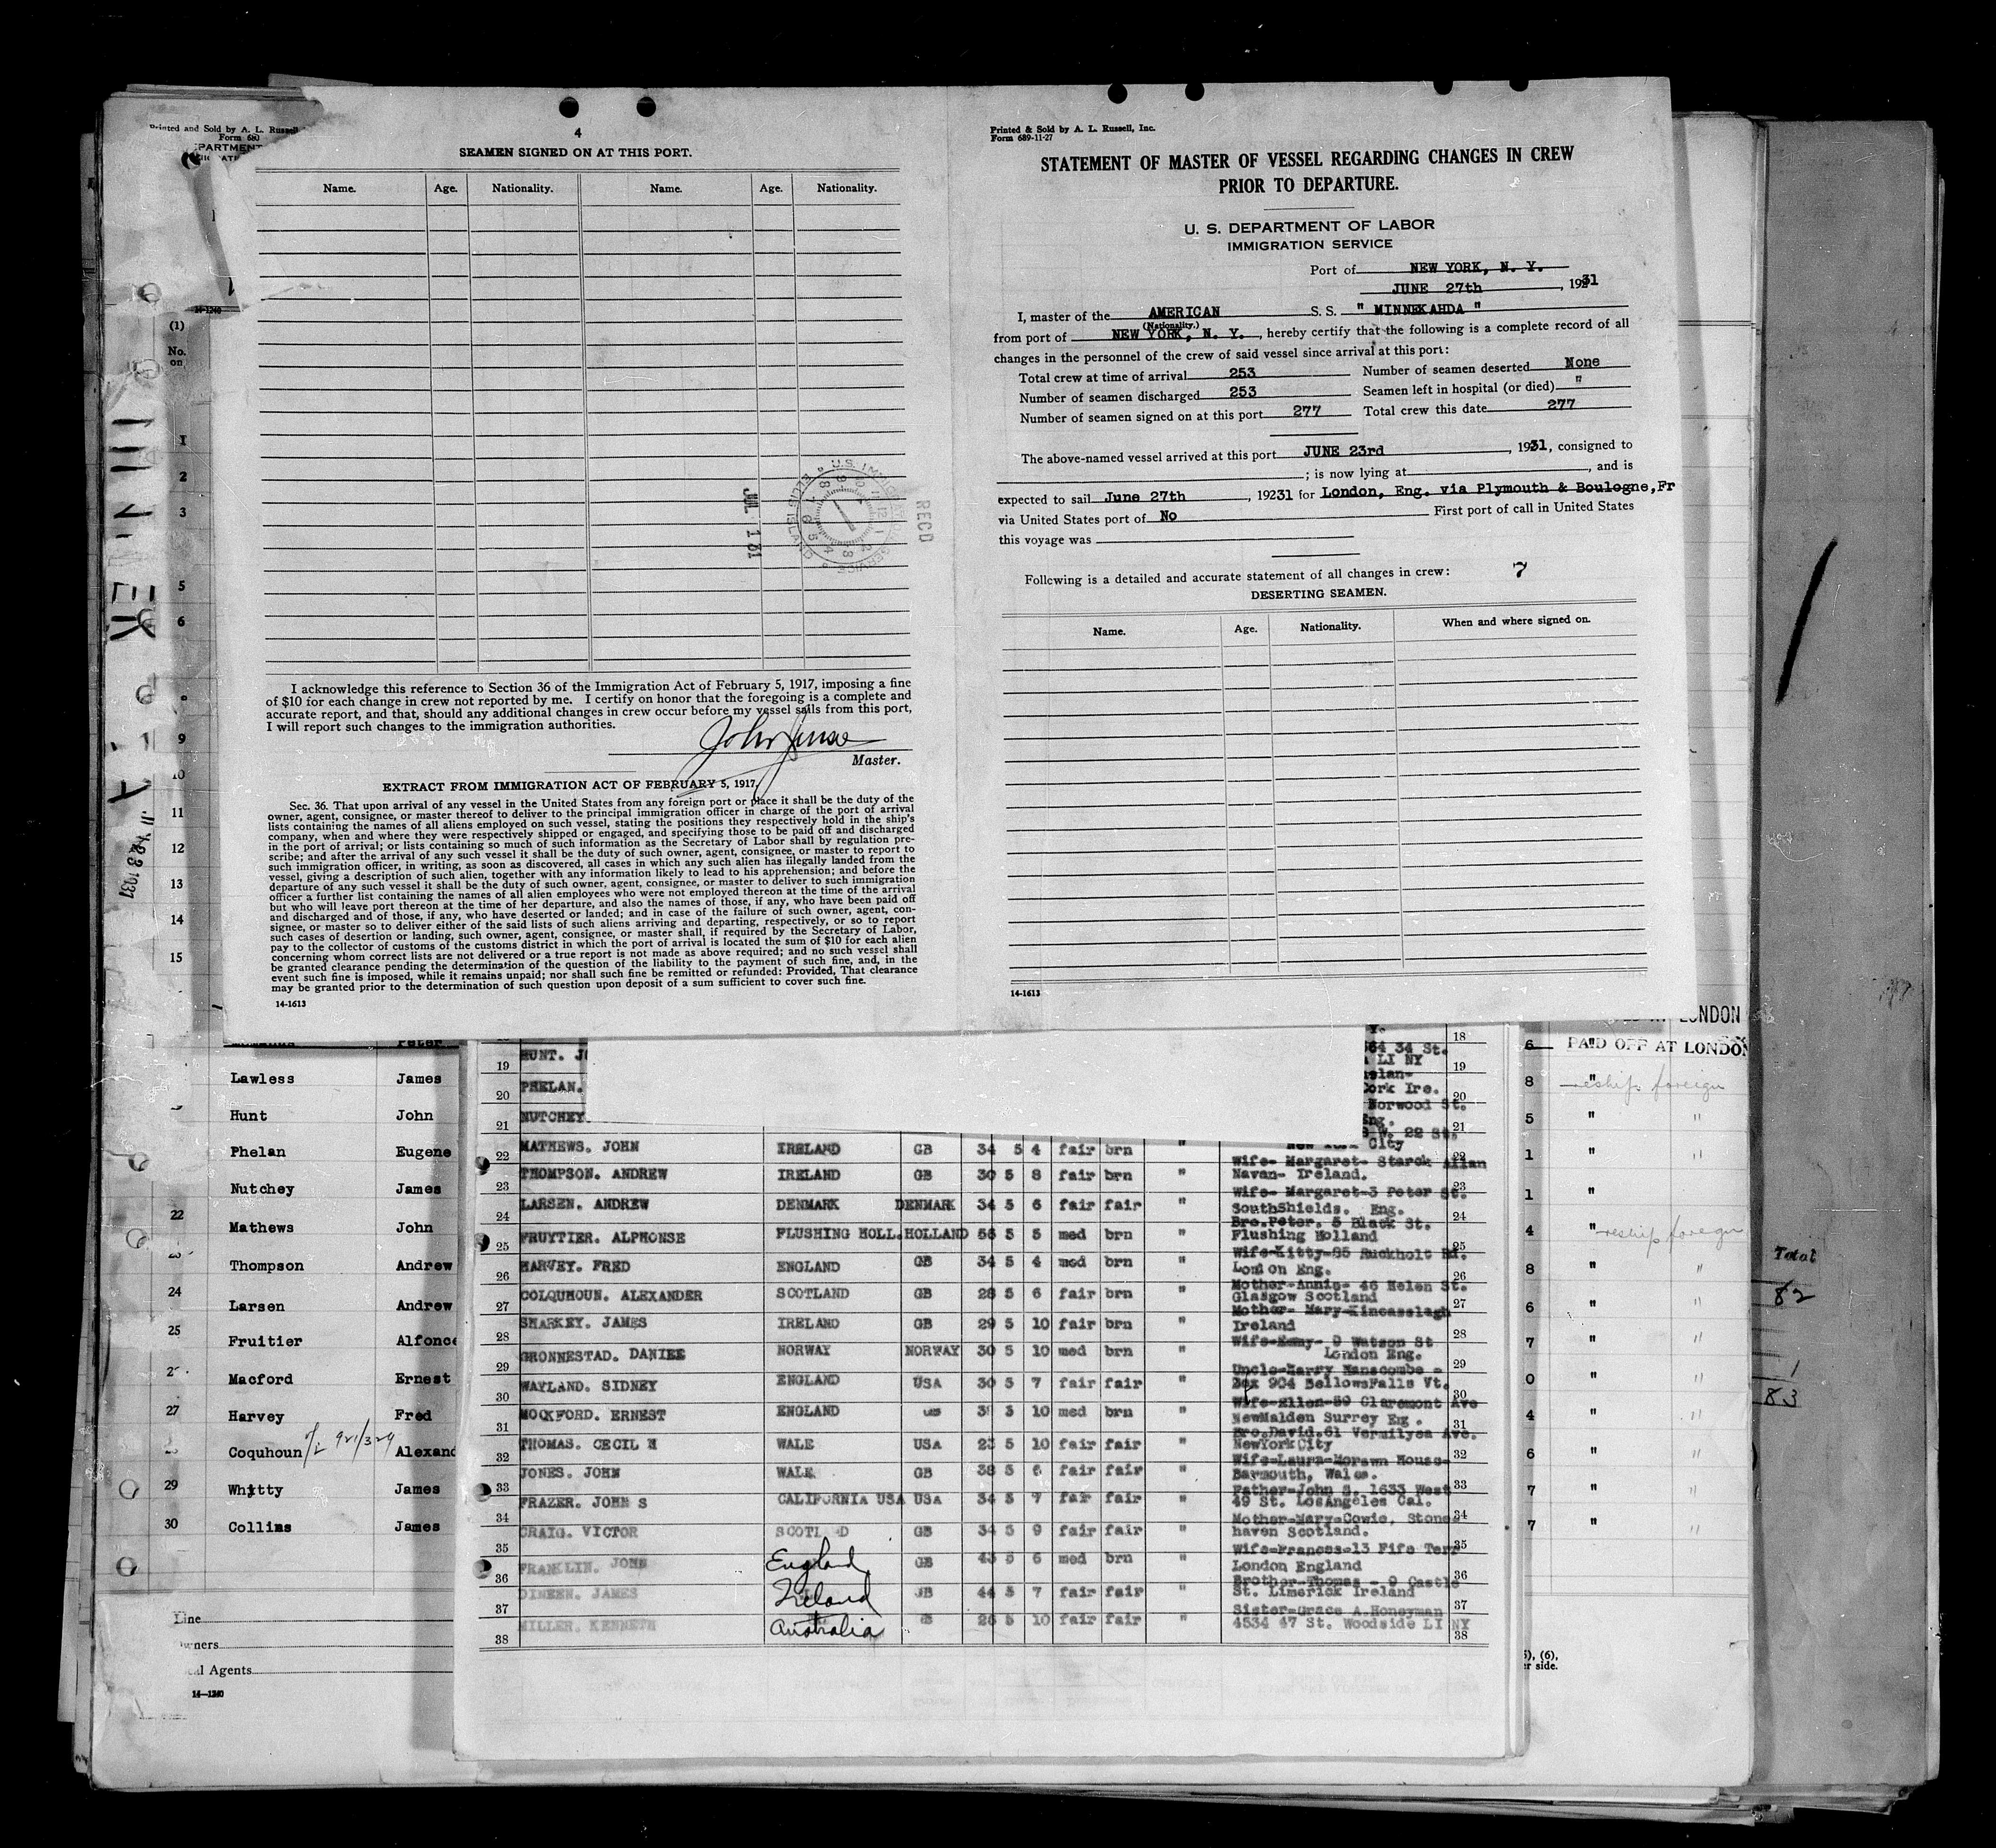 Printed and Sold by A. L. Russell
Form 680
4
SEAMEN SIGNED ON AT THIS PORT.
Name. Age. Nationality. Name. Age. Nationality.
U.S. IMMIGRATION SERVICE ELLIS ISLAND
JUL 1 31
RECD
I acknowledge this reference to Section 36 of the Immigration Act of February 5, 1917, imposing a fine
of $10 for each change in crew not reported by me. I certify on honor that the foregoing is a complete and
accurate report, and that, should any additional changes in crew occur before my vessel sails from this port,
I will report such changes to the immigration authorities.
Master.
EXTRACT FROM IMMIGRATION ACT OF FEBRUARY 5, 1917.
Sec. 36. That upon arrival of any vessel in the United States from any foreign port or place it shall be the duty of the
owner, agent, consignee, or master thereof to deliver to the principal immigration officer in charge of the port of arrival
lists containing the names of all aliens employed on such vessel, stating the positions they respectively hold in the ship's
company, when and where they were respectively shipped or engaged, and specifying those to be paid off and discharged
in the port of arrival; or lists containing so much of such information as the Secretary of Labor shall by regulation pre-
scribe; and after the arrival of any such vessel it shall be the duty of such owner, agent, consignee, or master to report to
such immigration officer, in writing, as soon as discovered, all cases in which any such alien has illegally landed from the
vessel, giving a description of such alien, together with any information likely to lead to his apprehension; and before the
departure of any such vessel it shall be the duty of such owner, agent, consignee, or master to deliver to such immigration
officer a further list containing the names of all alien employees who were not employed thereon at the time of the arrival
but who will leave port thereon at the time of her departure, and also the names of those, if any, who have been paid off
and discharged and of those, if any, who have deserted or landed; and in case of the failure of such owner, agent, con-
signee, or master so to deliver either of the said lists of such aliens arriving and departing, respectively, or so to report
such cases of desertion or landing, such owner, agent, consignee, or master shall, if required by the Secretary of Labor,
pay to the collector of customs of the customs district in which the port of arrival is located the sum of $10 for each alien
concerning whom correct lists are not delivered or a true report is not made as above required; and no such vessel shall
be granted clearance pending the determination of the question of the liability to the payment of such fine, and, in the
event such fine is imposed, while it remains unpaid; nor shall such fine be remitted or refunded: Provided, That clearance
may be granted prior to the determination of such question upon deposit of a sum sufficient to cover such fine.
14-1613
Printed & Sold by A. L. Russell, Inc.
Form 689-11-27
STATEMENT OF MASTER OF VESSEL REGARDING CHANGES IN CREW
PRIOR TO DEPARTURE.
U. S. DEPARTMENT OF LABOR
IMMIGRATION SERVICE
Port of NEW YORK, N. Y.
JUNE 27th , 1931
I, master of the AMERICAN S. S. " MINNEKAHDA "
(Nationality.)
from port of NEW YORK, N. Y. , hereby certify that the following is a complete record of all
changes in the personnel of the crew of said vessel since arrival at this port:
Total crew at time of arrival 253 Number of seamen deserted None
Number of seamen discharged 253 Seamen left in hospital (or died) "
Number of seamen signed on at this port 277 Total crew this date 277
The above-named vessel arrived at this port JUNE 23rd , 1931, consigned to
; is now lying at , and is
expected to sail June 27th , 19231 for London, Eng. via Plymouth & Boulogne,Fr
via United States port of No First port of call in United States
this voyage was
Following is a detailed and accurate statement of all changes in crew: 7
DESERTING SEAMEN.
Name. Age. Nationality. When and where signed on.
14-1613
14-1240
(1)
No.
on
1
2
3
5
6
9
10
11
12
13
14
15
Peter
Lawless James
Hunt John
Phelan Eugene
Nutchey James
22 Mathews John
Thompson Andrew
24 Larsen Andrew
25 Fruitier Alfonce
Macford Ernest
27 Harvey Fred
Coquhoun 921/329
29 Whitty James
30 Collins James
Line
Owners
Agents
14-1240
18
19 HUNT. 364 34 St. 19
LI NY
20 PHELAN. Cork Ire. 20
21 NUTCHEY. Norwood St. 21
Eng.
W. 22 St.
22 MATHEWS. JOHN IRELAND GB 34 5 4 fair brn " New York City 22
23 THOMPSON. ANDREW IRELAND GB 30 5 8 fair brn " Wife- Margaret- Starck Allan Navan- Ireland. 23
24 LARSEN. ANDREW DENMARK DENMARK 34 5 6 fair fair " Wife- Margaret-3 Peter St. SouthShields. Eng. 24
25 FRUYTIER. ALPHONSE FLUSHING HOLL. HOLLAND 56 5 5 med brn " Bro.Peter. 5 Black St. Flushing Holland 25
26 HARVEY. FRED ENGLAND GB 34 5 4 med brn " Wife-Kitty-95 Ruckholt Rd. London Eng. 26
27 COLQUHOUN. ALEXANDER SCOTLAND GB 28 5 6 fair brn " Mother-Annie- 46 Helen St. Glasgow Scotland 27
28 SHARKEY. JAMES IRELAND GB 29 5 10 fair brn " Mother- Mary-Kincasslagh Ireland 28
29 GRONNESTAD. DANIEL NORWAY NORWAY 30 5 10 med brn " Wife-Emmy- 9 Watson St London Eng. 29
30 WAYLAND. SIDNEY ENGLAND USA 30 5 7 fair fair " Uncle-Harry Hanscombe - Box 904 BellowsFalls Vt. 30
31 MOCKFORD. ERNEST ENGLAND 10 med brn " Wife-Ellen-59 Claremont Ave NewMalden Surrey Eng. 31
32 THOMAS. CECIL H WALE USA 23 5 10 fair fair " Bro.David.61 Vermilyea Ave. NewYorkCity 32
33 JONES. JOHN WALE GB 38 5 6 fair fair " Wife-Laura-Morawn House- Barmouth, Wales. 33
34 FRAZER. JOHN S CALIFORNIA USA USA 34 5 7 fair fair " Father-John S. 1633 West 49 St. LosAngeles Cal. 34
35 CRAIG. VICTOR SCOTL D GB 34 5 9 fair fair " Mother-Mary-Cowie, Stone- haven Scotland. 35
36 FRANKLIN. JOHN England GB 43 5 6 med brn " Wife-Frances-13 Fife Terr London England 36
37 DINEEN. JAMES Ireland GB 44 5 7 fair fair " Brother-Thomas - 9 Castle St. Limerick Ireland 37
38 MILLER. KENNETH Australia 26 5 10 fair fair " Sister-Grace A.Honeyman 4534 47 St. Woodside LI NY 38
LONDON
6 PAID OFF AT LONDON
8 " reship foreign
5 " "
1 " "
1 "
4 " reship foreign
8 " "
6 " "
7 " "
0 " "
4 " "
6 " "
7 " "
7 " "
(6),
side.
Total
82
1
83